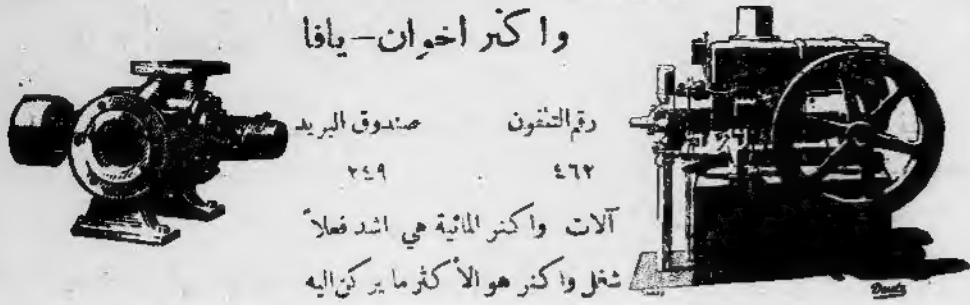 واكنر اخوان - يافا
رقم التلفون    صندوق البريد
٤٦٢    ٢٤٩
آلات واكنر المائية هي اشد فعلاً
شغل واكنر هو الأكثر ما يركن اليه
Deutz